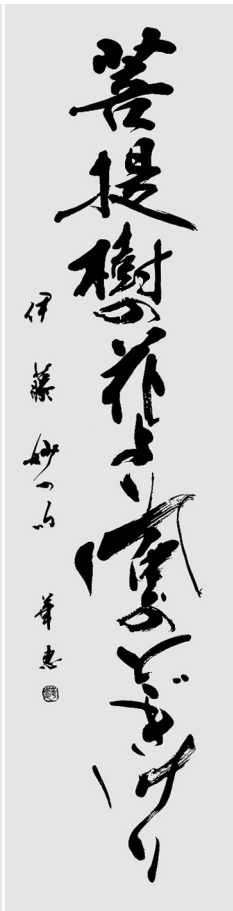 菩提樹の花より風のとゞきけり
伊藤妙の句 華恵